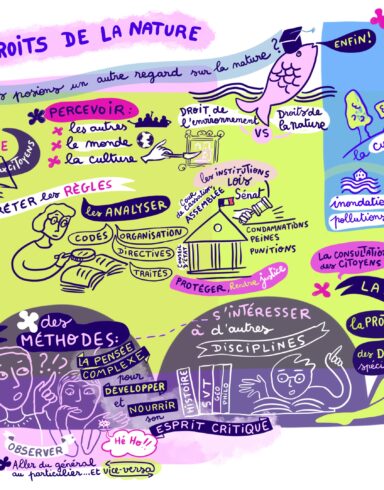 ROITS DE LA NATURE
posions un autre regard sur la nature?
ENFIN!
PERCEVOIR:
les autres
le monde
la culture
DROIT de
l'environnement
VS
DROITS de
la nature
CITOYENS
les RÈGLES
les ANALYSER
CODES
ORGANISATION
DIRECTIVES
TRAITÉS
les INSTITUTIONS
LOIS
Sénat
ASSEMBLÉE
COUR
de CASSATION
CONSEIL
D'ÉTAT
CONDAMNATIONS
PEINES
PUNITIONS
PROTÉGER, Rendre justice
inondation
pollution
LA CONSULTATION
des CITOYENS
LA
la PRO
des D
spéci
des
MÉTHODES:
LA PENSÉE
COMPLEXE
pour
DÉVELOPPER
et
NOURRIR
son
ESPRIT CRITIQUE
S'INTÉRESSER
à d'autres
DISCIPLINES
HISTOIRE
SVT
GEO
PHILO
?!?
OBSERVER
Hé Ho!!
Aller du général
au particulier...ET vice-versa